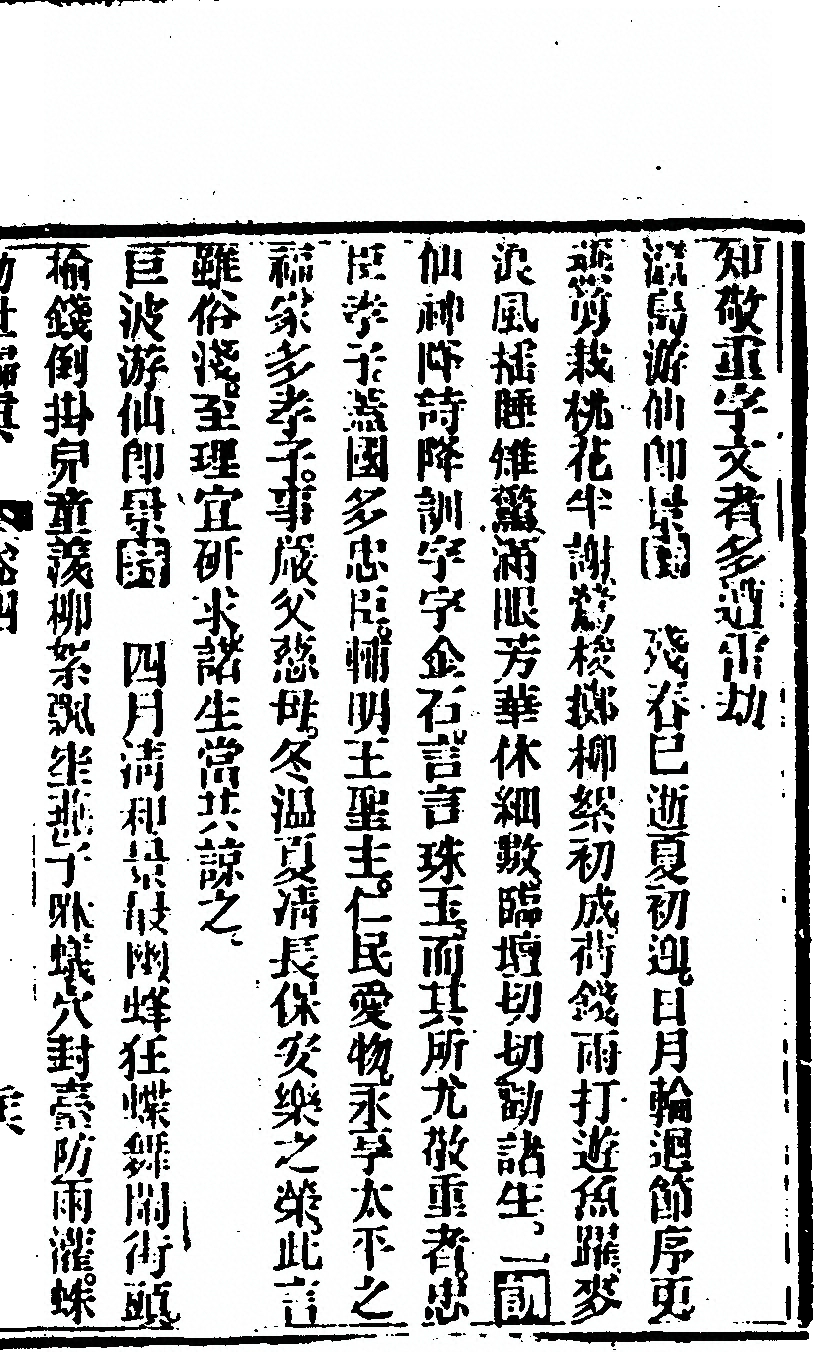 知敬重字文者多遭雷劫
瀛島游仙即景詞　殘春已逝夏初迎日月輪迴節序更
誰剪栽桃花半謝鶯梭擲柳絮初成荷錢雨打遊魚躍麥
浪風搖睡雉驚滿眼芳華休細數臨壇切切勸諸生　一訓
仙神降詩降訓字字金石言言珠玉而其所尤敬重者忠
臣孝子蓋國多忠臣輔明王聖主仁民愛物永享太平之
福家多孝子事嚴父慈母冬温夏凊長保安樂之榮此言
雖俗淺至理宜研求諸生當共諒之
巨波游仙即景詞　四月淸和景最幽蜂狂蝶舞鬧街頭
榆錢倒掛兒童羨柳絮飄坐燕子愁蟻穴封臺防雨灌蛛